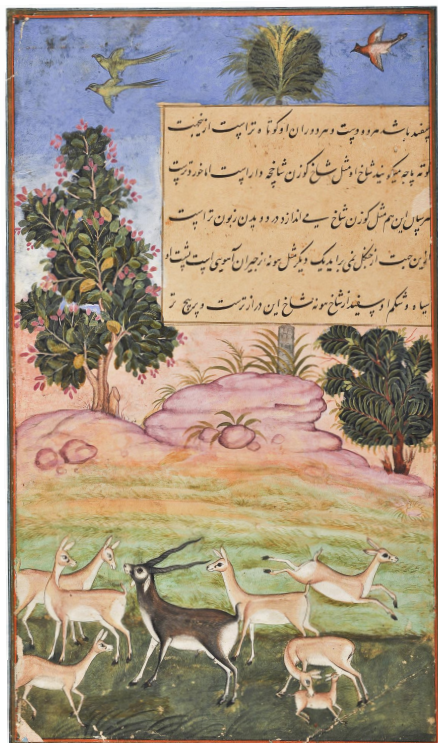 سفید باشد هر دو دست و هر دو ران او کوتاه تر است ازین جهت
کوته پاچه میگویند شاخ او مثل شاخ گوزن شاخچه دار است اما خوردتر است
هر سال این هم مثل گوزن شاخ می اندازد در دویدن زبون تر است
از جنگل نمی براید یک دیگر مثل هونه از جیران آهویی است پشت او
سیاه و شکم او سفید از شاخ هونه شاخ این درازترست و پر پیچ تر